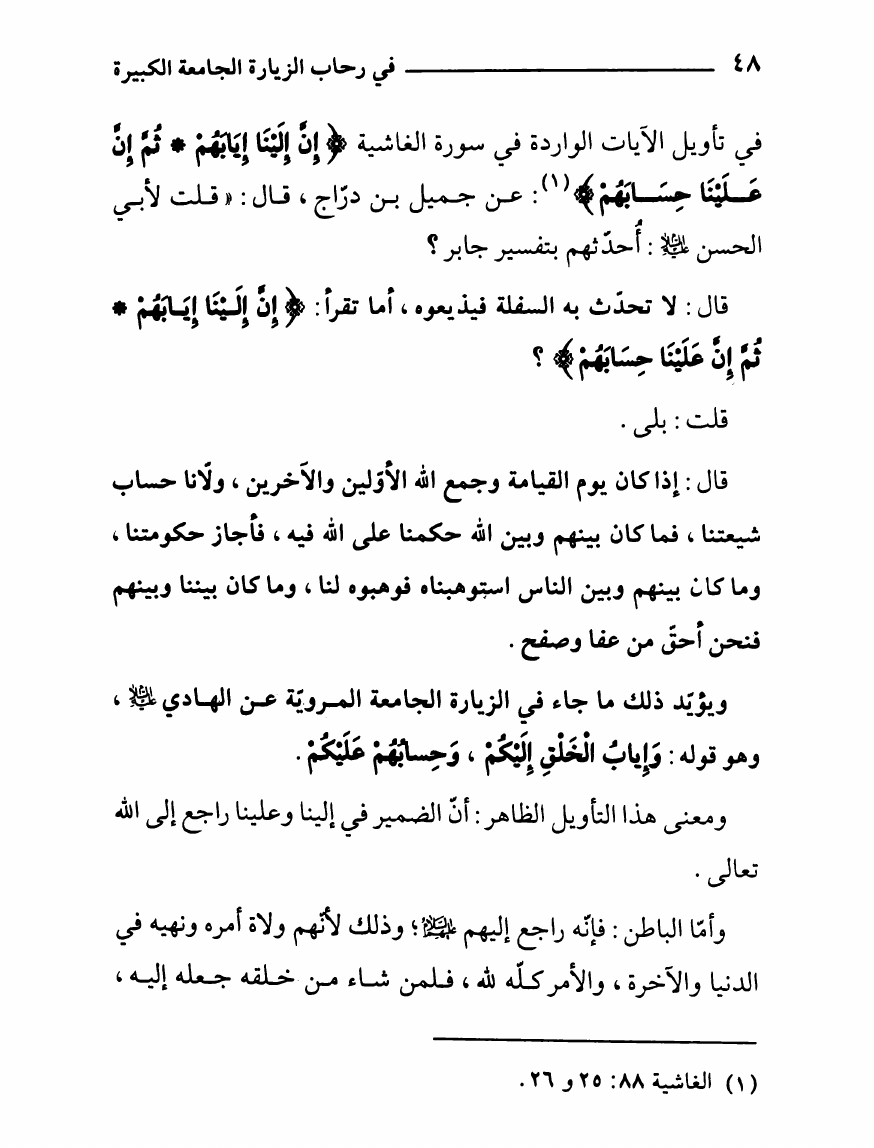 ٤٨ ــــــــــــــــــــــــــــــ في رحاب الزيارة الجامعة الكبيرة
في تأويل الآيات الواردة في سورة الغاشية ﴿ إِنَّ إِلَيْنَا إِيَابَهُمْ * ثُمَّ إِنَّ
عَـلَـيْنَا حِسَـابَهُمْ ﴾(١): عـن جـميل بـن درّاج ، قـال : « قـلت لأبـي
الحسن عليه السلام : أُحدّثهم بتفسير جابر ؟
قال : لا تحدّث به السفلة فيذيعوه ، أما تقرأ : ﴿ إِنَّ إِلَـيْنَا إِيَـابَهُمْ *
ثُمَّ إِنَّ عَلَيْنَا حِسَابَهُمْ ﴾ ؟
قلت : بلى .
قال : إذا كان يوم القيامة وجمع الله الأوّلين والآخرين ، ولّانا حساب
شيعتنا ، فما كان بينهم وبين الله حكمنا على الله فيه ، فأجاز حكومتنا ،
وما كان بينهم وبين الناس استوهبناه فوهبوه لنا ، وما كان بيننا وبينهم
فنحن أحقّ من عفا وصفح .
ويؤيّد ذلك ما جاء في الزيارة الجامعة المـرويّة عـن الهـادي عليه السلام ،
وهو قوله : وَإِيابُ الْخَلْقِ إِلَيْكُمْ ، وَحِسابُهُمْ عَلَيْكُمْ .
ومعنى هذا التأويل الظاهر : أنّ الضمير في إلينا وعلينا راجع إلى الله
تعالى .
وأمّا الباطن : فإنّه راجع إليهم عليهم السلام ؛ وذلك لأنّهم ولاة أمره ونهيه في
الدنيا والآخرة ، والأمر كلّه لله ، فـلمن شـاء مـن خـلقه جـعله إليـه ،
(١) الغاشية ٨٨: ٢٥ و ٢٦ .